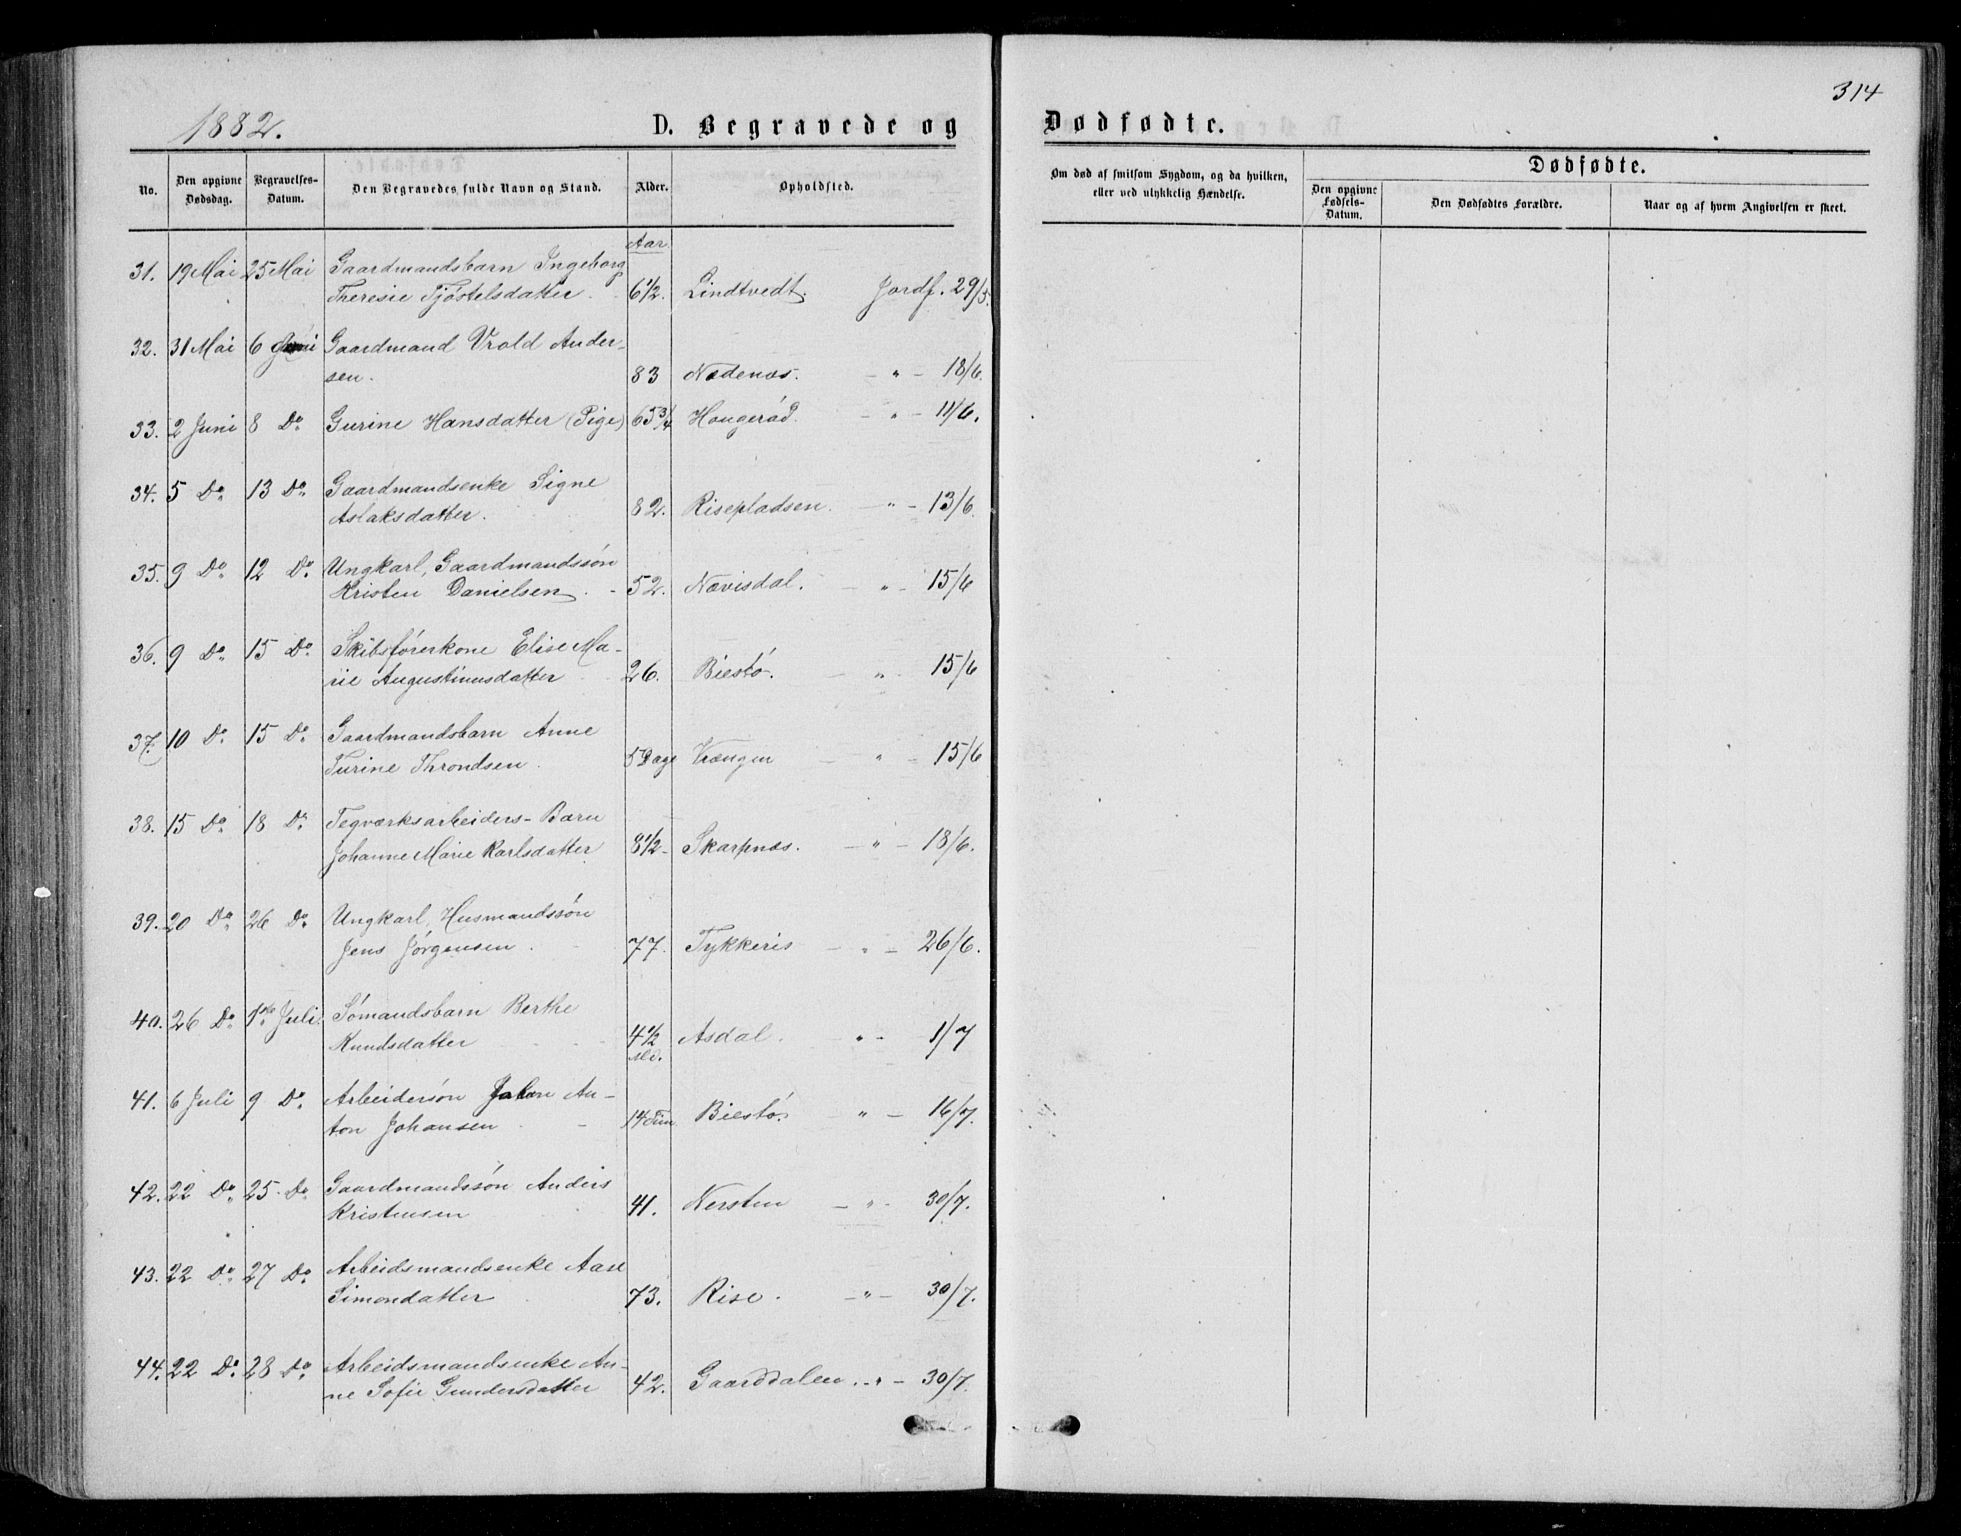 314
1882.
D. Begravede og Dødfødte.
No.
Den opgivne Dødsdag.
Begravelses-Datum.
Den Begravedes fulde Navn og Stand.
Alder.
Opholdssted.
Om død af smitsom Sygdom, og da hvilken, eller ved ulykkelig Hændelse.
Dødfødte.
Den opgivne Fødsels-Datum.
Den Dødfødtes Forældre.
Naar og af hvem Angivelsen er skeet.
Aar
31. 19 Mai 25 Mai Gaardmandsbarn Ingeborg
Theresie Tjøstelsdatter. 6 1/2. Lindtvedt. Jordf. 29/5.
32. 31 Mai 6 Juni Gaardmand Vrold Ander-
sen. 83 Nædenæs. - " - 18/6.
33. 2 Juni 8 Do Gurine Hansdatter (Pige) 65 3/4 Hougerød. - " - 11/6.
34. 5 Do 13 Do Gaardmandsenke Signe
Aslaksdatter. 82. Risepladsen. - " - 13/6.
35. 9 Do 12 Do Ungkarl, Gaardmandssøn
Kristen Danielsen. 52. Nævisdal. - " - 15/6
36. 9 Do 15 Do Skibsførerkone Elise Ma-
rie Augustinusdatter 26. Biestø. - " - 15/6
37. 10 Do 15 Do Gaardmandsbarn Anne
Turine Throndsen. 5 Dage Vrængen - " - 15/6
38. 15 Do 18 Do Tegværksarbeiders-Barn
Johanne Marie Karlsdatter 8 1/2 - Skarpnæs. - " - 18/6.
39. 20 Do 26 Do Ungkarl, Husmandssøn
Jens Jørgensen. 77. Tykkeris - " - 26/6.
40. 26 Do 1ste Juli Sømandsbarn Berthe
Knudsdatter 4 1/2 Md. Asdal. " - 1/7
41. 6 Juli 9 Do Arbeidersøn Johan An-
ton Johansen 14 Tim Biestø. - " - 16/7.
42. 22 Do 25 Do Gaardmandssøn Anders
Kristensen 41. Nersten - " - 30/7.
43. 22 Do 27 Do Arbeidsmandsenke Aase
Simondatter 73. Rise. - " - 30/7.
44. 22 Do 28 Do Arbeidsmandsenke An-
ne Sofie Gundersdatter 42. Gaarddalen. - " - 30/7.